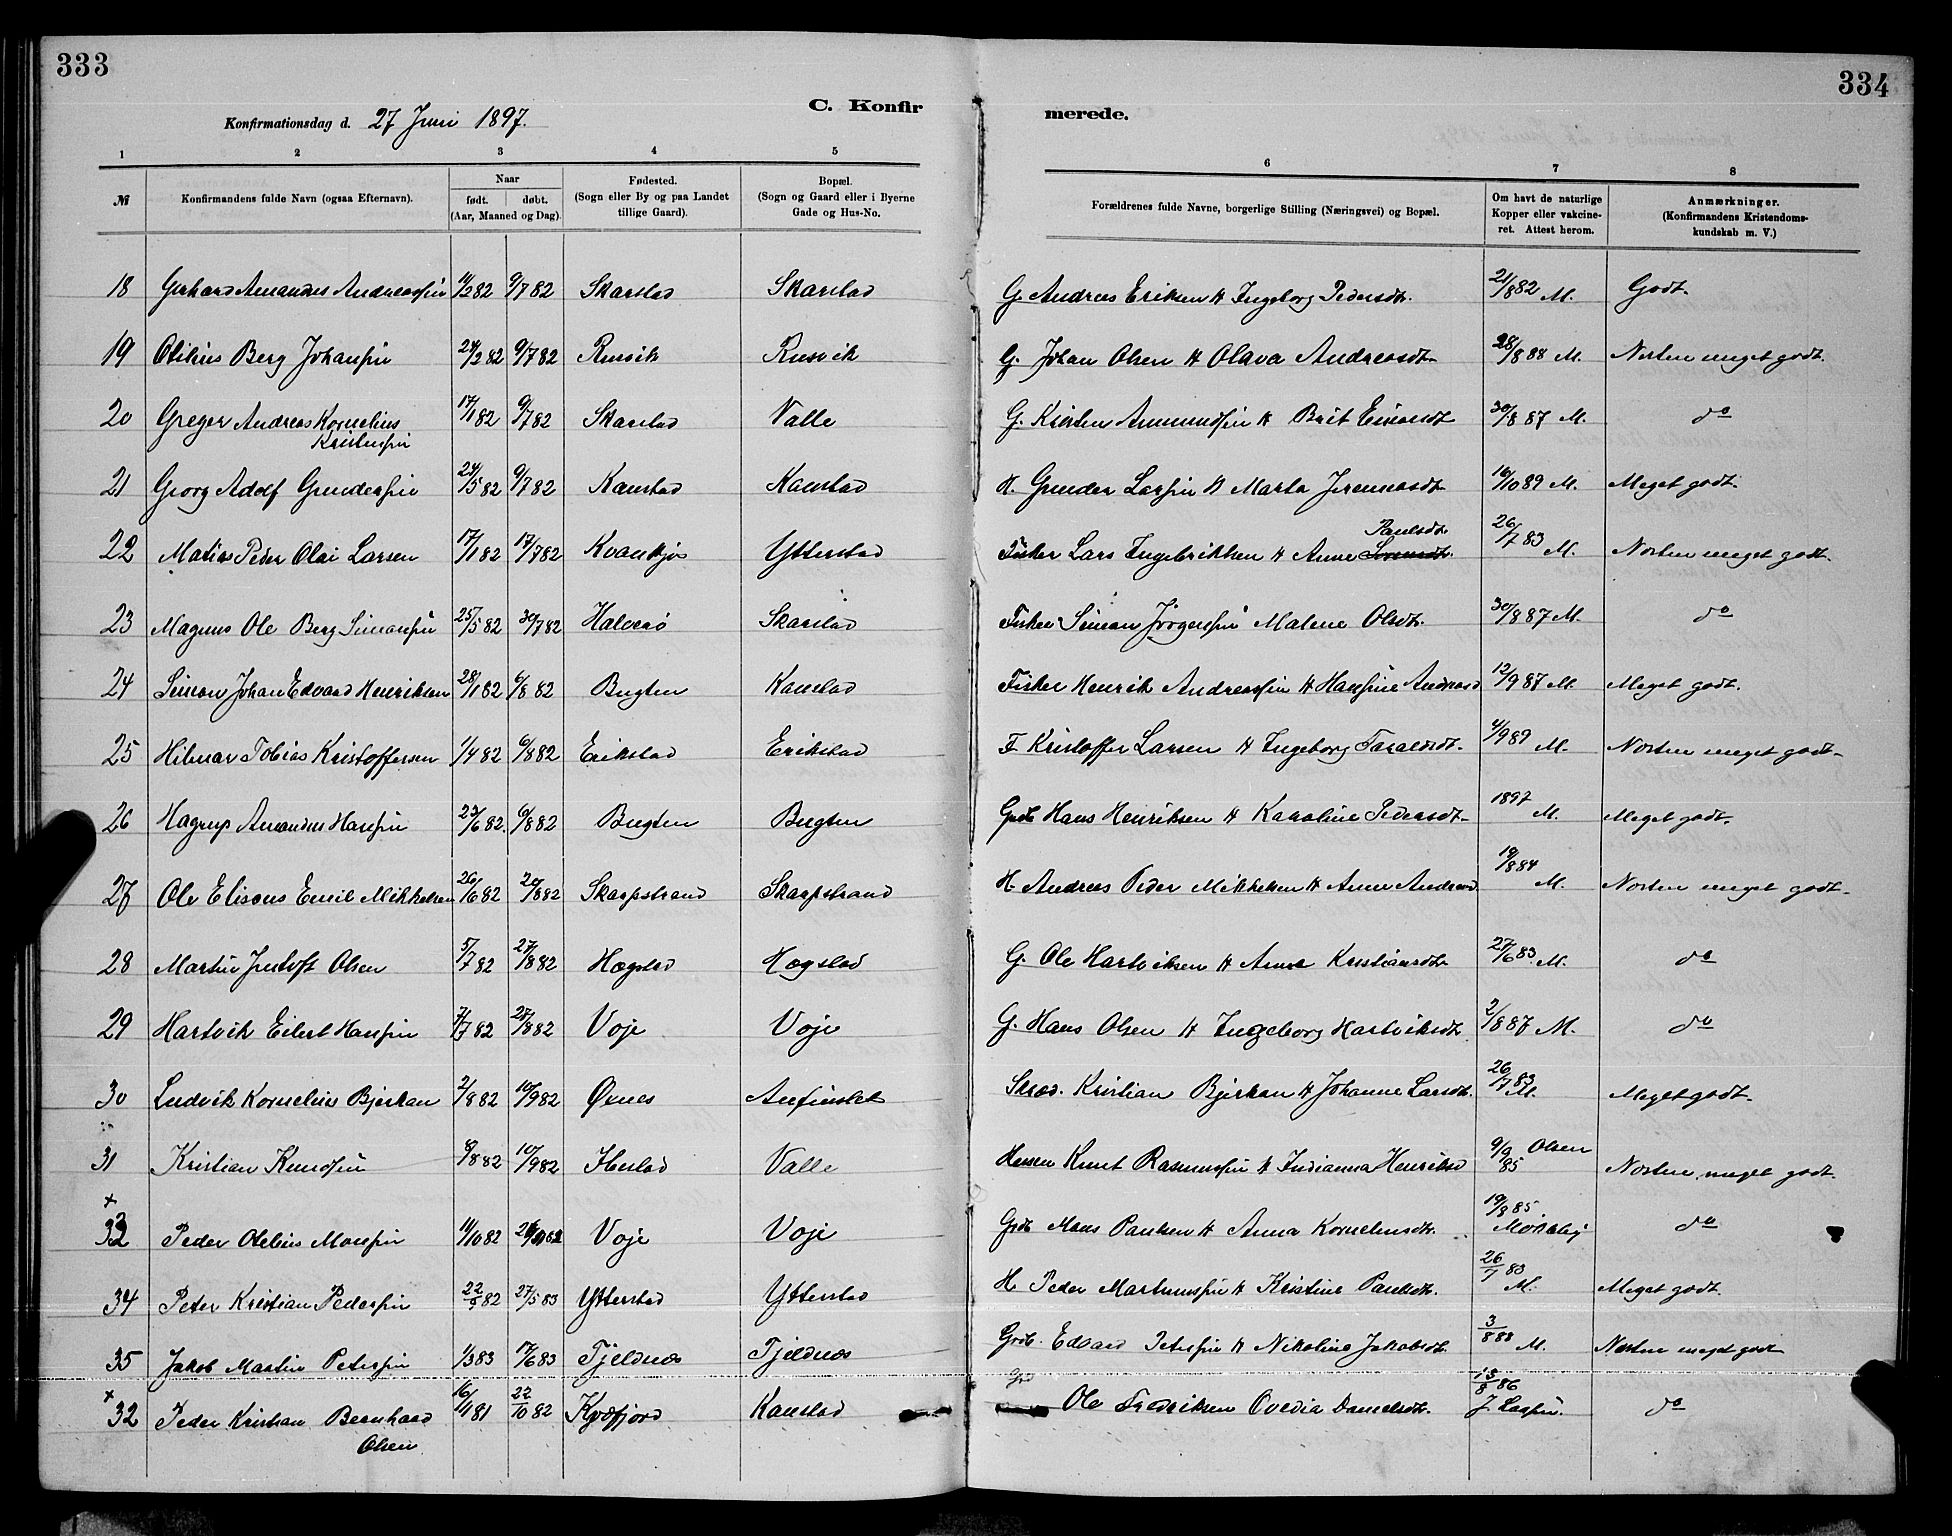 333
334
C. Konfir
merede.
Konfirmationsdag d. 27 Juni 1897.
1 2 3 4 5 6 7 8
№ Konfirmandens fulde Navn (ogsaa Efternavn). Naar født. døbt. (Aar, Maaned og Dag). Fødested. (Sogn eller By og paa Landet tillige Gaard). Bopæl. (Sogn og Gaard eller i Byerne Gade og Hus-No. Forældrenes fulde Navne, borgerlige Stilling (Næringsvei) og Bopæl. Om havt de naturlige Kopper eller vakcineret. Attest herom. Anmærkninger. (Konfirmandens Kristendomskundskab m. V.)
18 Gerhard Amandus Andreassen 82 9/7 82 Skarstad Skarstad G. Andreas Eriksen & Ingeborg Pedersdt. 21/8 82 M. Godt.
19 Otilius Berg Johansen 24/2 82 9/7 82 Rusvik Rusvik G. Johan Olsen & Olava Andreasdt. 28/8 88 M. Næsten meget godt.
20 Greger Andreas Kornelius Kristensen 17/1 82 9/7 82 Skarstad Valle G. Kristen Amundsen & Brit Einarsdt 30/8 87 M. do
21 Georg Adolf Gundersen 24/5 82 9/7 82 Kanstad Kanstad H. Gunder Larsen & Marta Jeremiasdt 16/10 89 M. Meget godt.
22 Matias Peder Olai Larsen 17/1 82 17/7 82 Ytterstad Fisker Lars Ingebrikken & Anne Paulsdt. 26/7 83 M. Næsten meget godt.
23 Magnus Ole Berg Simonsen 25/5 82 30/7 82 Halvarø Skarstad Fisker Simon Jørgensen Malene Olsdt. 30/8 87 M. do
24 Simon Johan Edvard Henriksen 28/1 82 6/8 82 Bugten Kanstad Fisker Henrik Andreassen & Hansine Andreasd 12/9 87 M. Meget godt.
25 Hilmar Tobias Kristoffersen 1/4 82 6/8 82 Erikstad Erikstad F. Kristoffer Larsen & Ingeborg Taraldsdt. 4/9 89 M. Næsten meget godt.
26 Hagrup Amandus Hansen 23/6 82. 6/8 82 Bugten Bugten Grdb Hans Henriksen & Karoline Pedersdt. 1897 M. Meget godt.
27 Ole Eliseus Emil Mikkelsen 26/6 82 20/8 82 Skarpstrand Skarpstrand H. Andreas Peder Mikkelsen & Anne Andreasd. 19/8 84 M. Næsten meget godt.
28 Martin Justoft Olsen 5/7 82 27/8 82 Hægstad Hægstad G. Ole Hartviksen & Anne Kristiansdt. 27/6 83. M. do
29 Hartvik Eilert Hansen 7/7 82 27/8 82 Voje Voje G. Hans Olsen & Ingeborg Hartviksdt. 2/8 87 M. do
30 Ludvik Kornelius Bjerkan 2/8 82 10/9 82 Øvnes Anfinslet Skræd. Kristian Bjerkan & Johanne Larsdt. 26/7 83 M. Meget godt.
31 Kristian Knudsen 8/8 82 10/9 82 Valle Knut Rasmussen & Indianna Henriksd 9/9 85 Olsen Næsten meget godt.
+ 33 Peder Otelius Monsen 11/10 82 Voje Voje Grdb Mons Paulsen & Anna Korneliusdt. 19/8 85. do
34 Peter Kristian Pedersen 22/5 82 27/5 83 Ytterstad Ytterstad H. Peder Martinussen & Kristine Paulsdt. 26/7 83 M. Meget godt.
35 Jakob Martin Petersen 1/3 83 17/6 83 Tjeldnæs Tjeldnæs Grdb. Edvard Petersen & Nikoline Jakobsdt. 3/8 88 M. Næsten meget godt
+ 32 Peder Kristian Bernhard Olsen 16/1 81 22/10 82 Kvæfjord Kanstad Grd Ole Fredriksen Ovedia Danielsdt. 13/8 86 J. Larsen. do